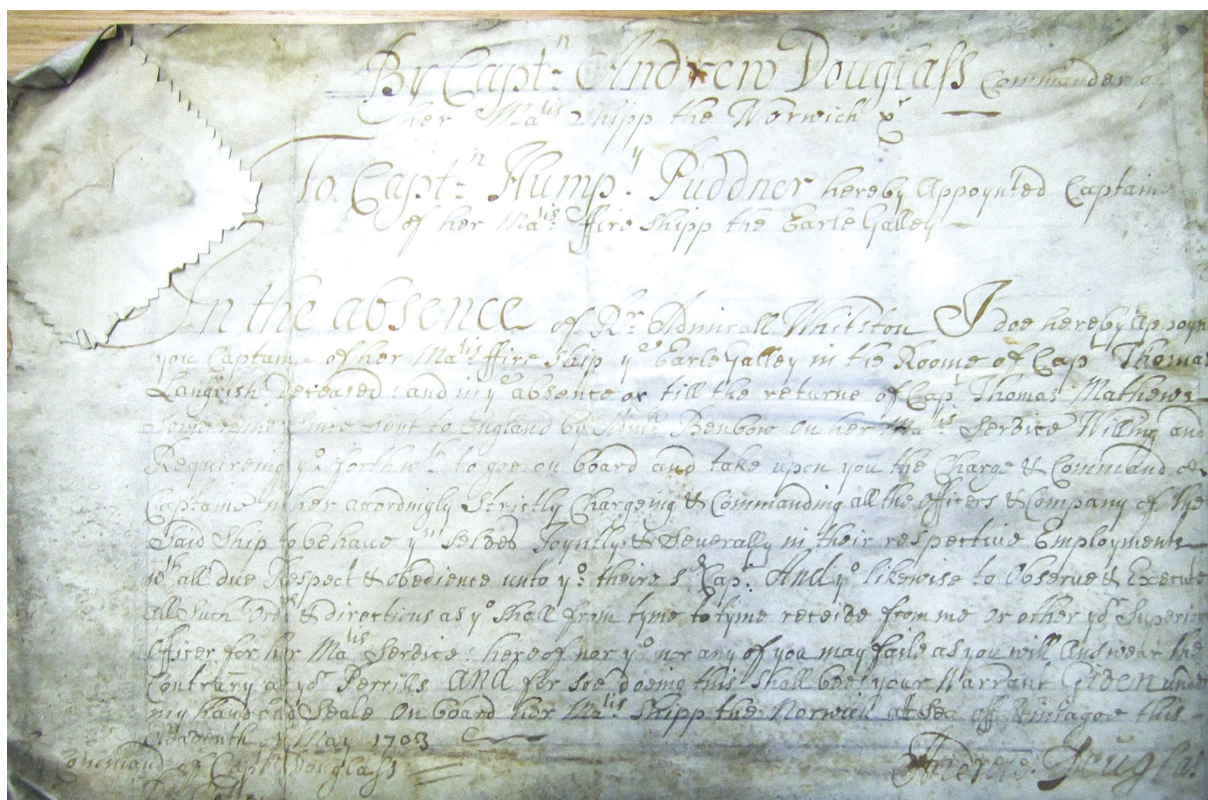 By Capt:n Andrew Douglass Commander of
her Ma:tis Shipp the Norwich &c
To Capt:n Hump:y Puddner hereby Appoynted Captain
of her Ma:tis ffire Shipp the Earle Galley
In the absence of Rr Admirall Whitston I doe hereby Appoynt
you Captaine of her Ma:tis ffire Ship ye Earle Galley in the Roome of Cap:t Thomas
Langrish Deceased: and in ye absence or till the returne of Cap:t Thomas Mathews
some tyme since sent to England by Benbow on her Ma:tis Service Willing and
Requireing yo forthwth to goe on board and take upon you the Charge & Command of
Captaine in her accordingly Strictly Chargeing & Commanding all the Officers & Company of the
Said Ship to behave ym selves Joyntly & Severally in their respective Employments
wth all due Respect & obedience unto yo: theire sd Cap:t And yo likewise to Observe & Execute
all such & directions as yo shall from tyme to tyme receive from me or other yor Superior
Officer for her Ma:tis Service: hereof nor yo nor any of you may faile as you will Answear the
Contrary at yor Perrills And for soe doeing this shall bee your Warrant Given under
my hand and Seale On board her Ma:tis Shipp the Norwich att Sea off this
May 1703
By Command of Capt:n Douglass
Andrew: Douglas